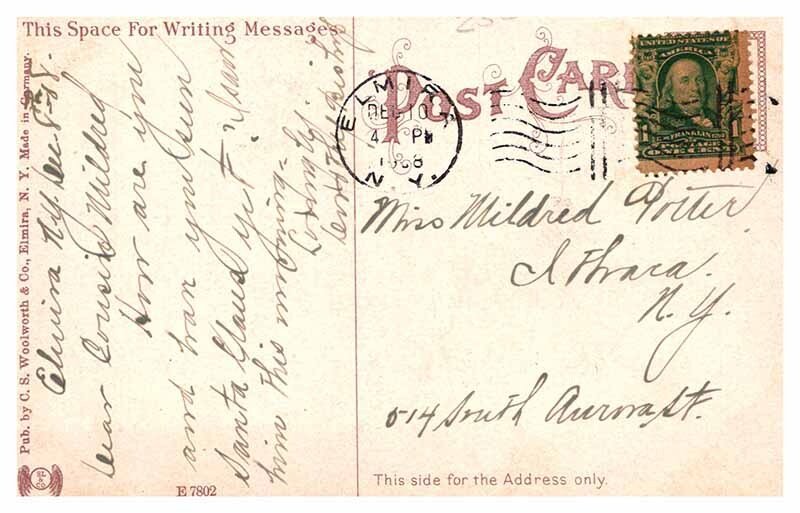 This Space For Writing Messages
POST CARD
ELMIRA
DEC 10
4 PM
1908
N.Y.
UNITED STATES OF
AMERICA
FRANKLIN
POSTAGE
ONE CENT
Elmira N.Y. Dec 8-08.
Dear Cousin Mildred
How are you
and han you seen
Santa Claus yet I saw
him this morning-
Miss Mildred Potter
Ithaca.
N.Y.
514 South Aurora St.
Pub. by C. S. Woolworth & Co., Elmira, N. Y. Made in Germany.
E 7802
This side for the Address only.
SL
& CO